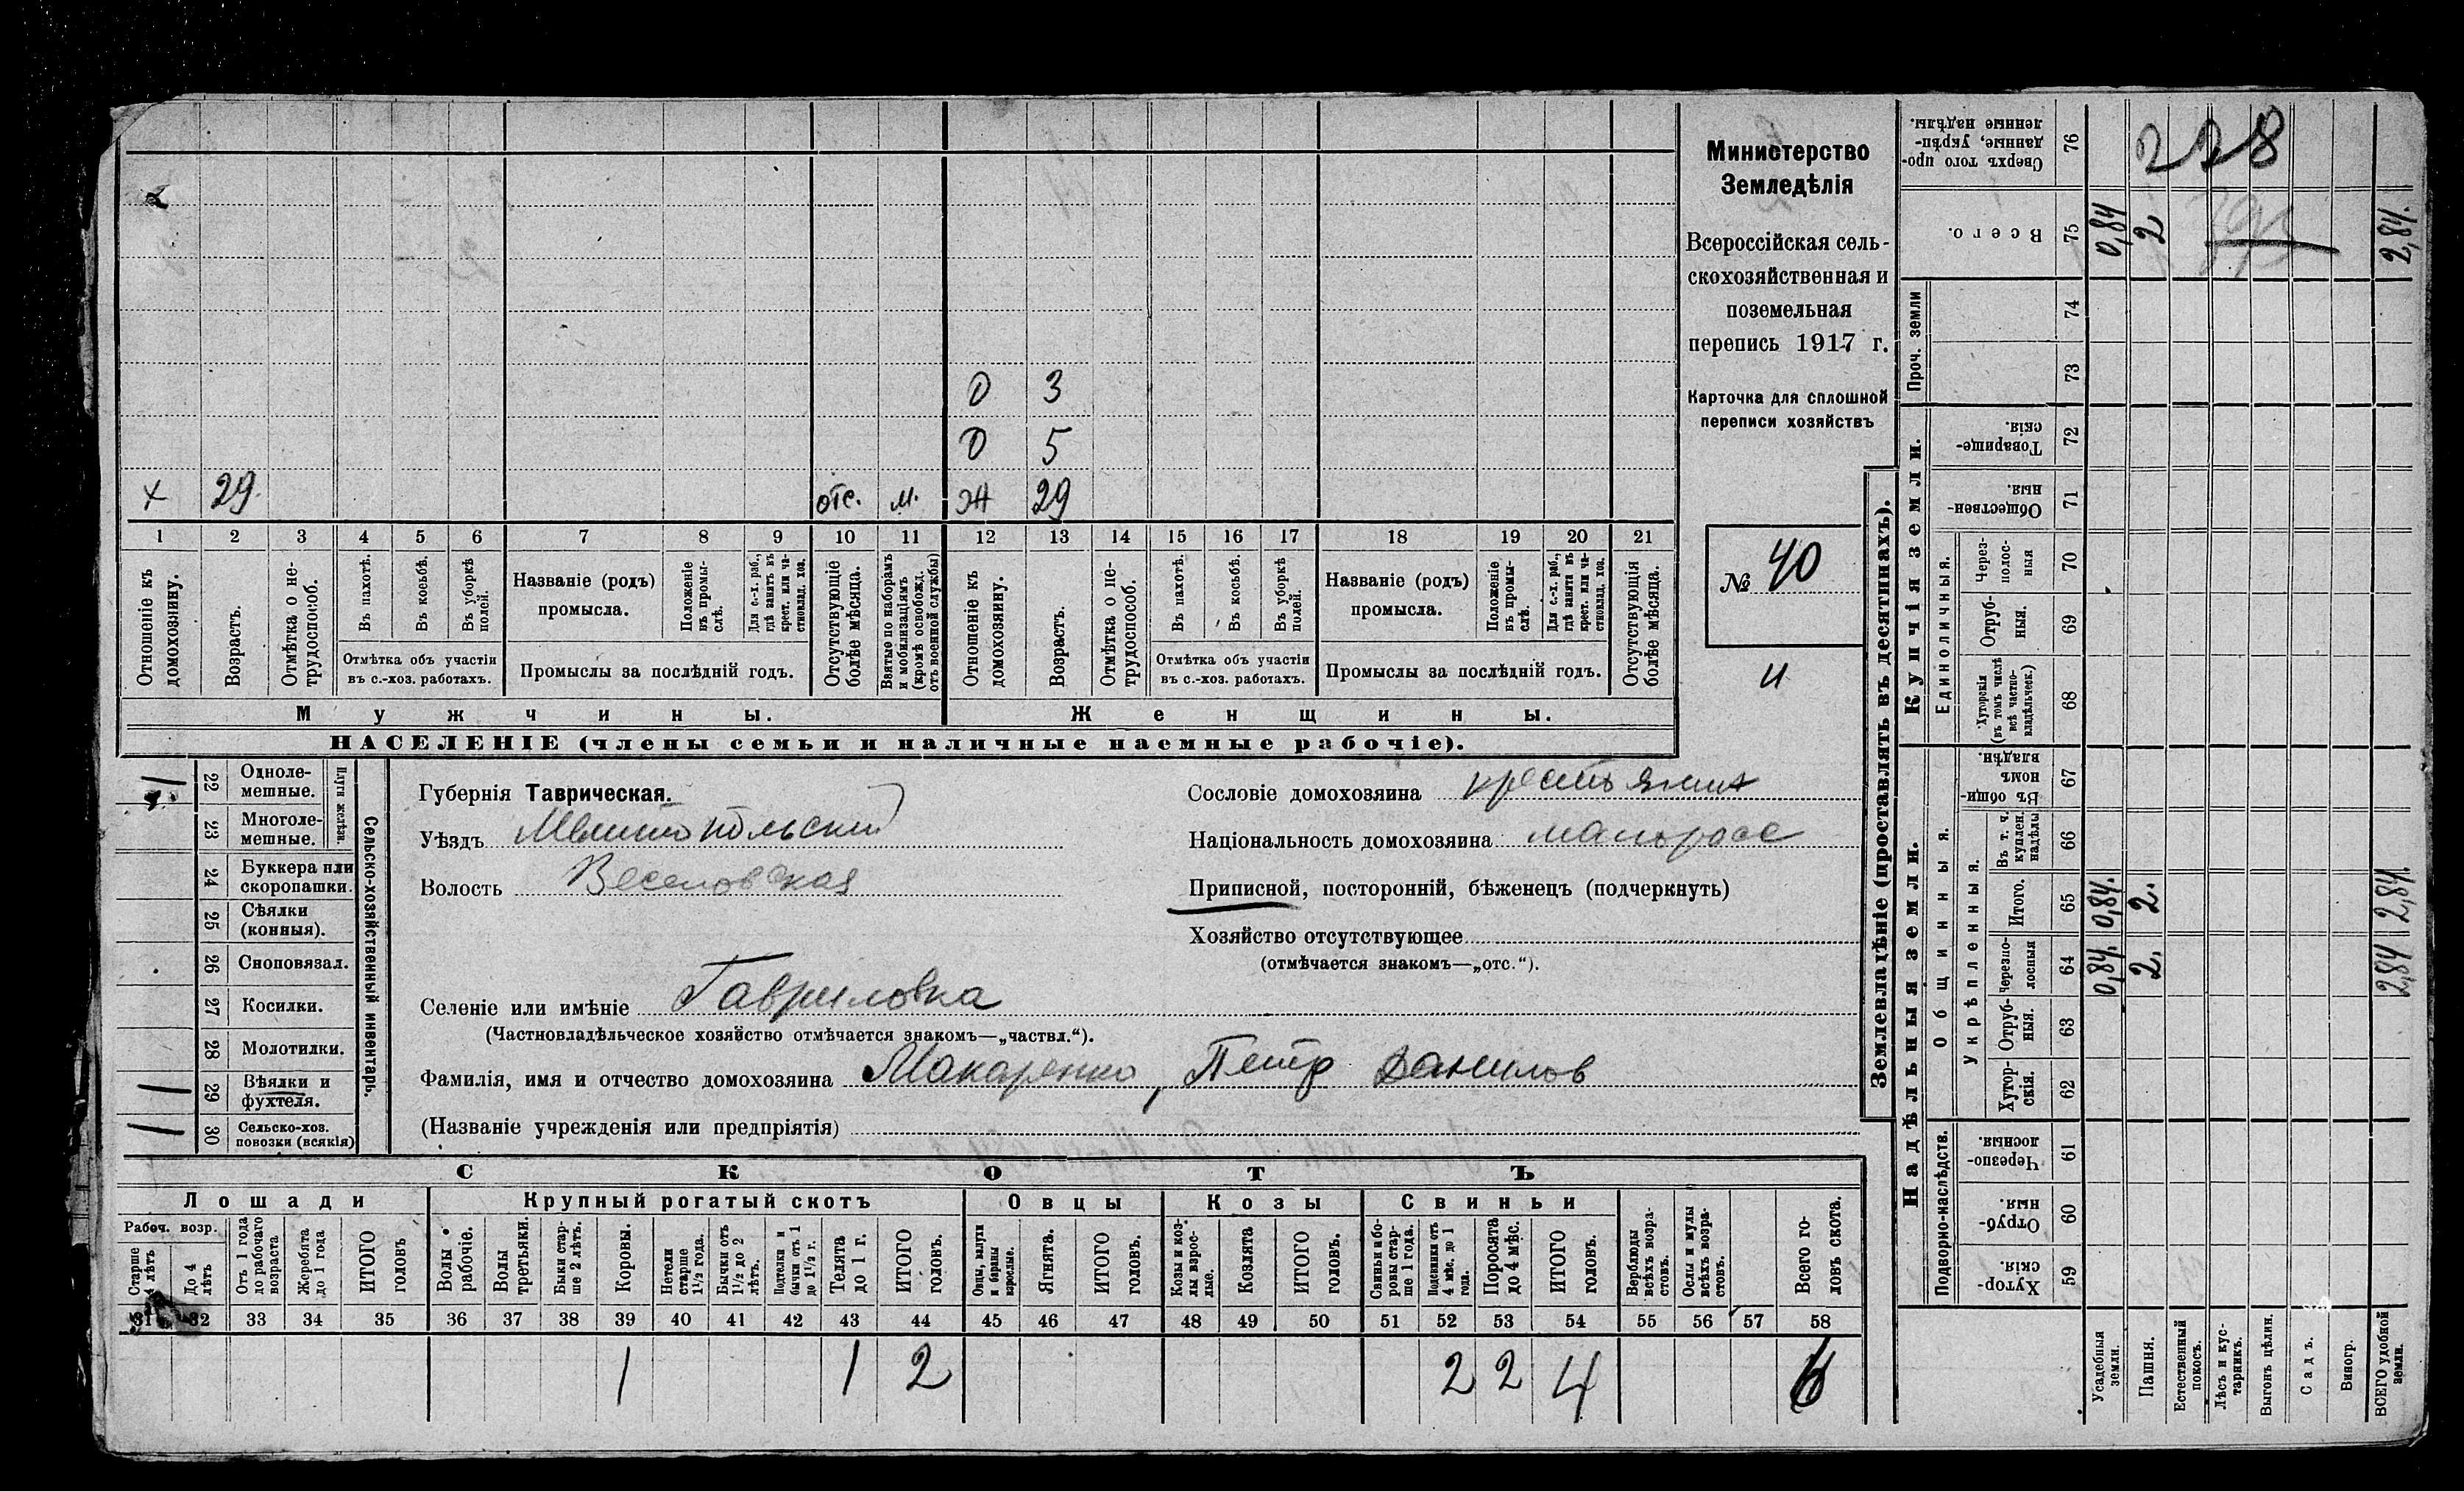 О 3
О 5
х 29. отс. м. Ж 29
1 2 3 4 5 6 7 8 9 10 11 12 13 14 15 16 17 18 19 20 21
Отношеніе къ домохозяину.
Возрастъ.
Отмѣтка о не-трудоспособ.
Въ пахотѣ.
Въ косьбѣ.
Въ уборкѣ полей.
Отмѣтка объ участіи
въ с.-хоз. работахъ.
Названіе (родъ)
промысла.
Положеніе въ промы-слѣ.
Для с.-х. раб., гдѣ занятъ въ крест. или ча-стновлад. хоз.
Промыслы за послѣдній годъ.
Отсутствующіе болѣе мѣсяца.
Взятые по наборамъ и мобилизаціямъ (кромѣ освобожд. отъ военной службы)
Отношеніе къ домохозяину.
Возрастъ.
Отмѣтка о не-трудоспособ.
Въ пахотѣ.
Въ косьбѣ.
Въ уборкѣ полей.
Отмѣтка объ участіи
въ с.-хоз. работахъ.
Названіе (родъ)
промысла.
Положеніе въ промы-слѣ.
Для с.-х. раб., гдѣ занята въ крест. или ча-стновлад. хоз.
Промыслы за послѣдній годъ.
Отсутствующія болѣе мѣсяца.
Мужчины.
Женщины.
НАСЕЛЕНІЕ (члены семьи и наличные наемные рабочіе).
Министерство
Земледѣлія
Всероссійская сель-
скохозяйственная и
поземельная
перепись 1917 г.
Карточка для сплошной
переписи хозяйствъ
№ 40
и
Сельско-хозяйственный инвентарь.
Плуги желѣзн.
1 22 Одноле-мешные.
23 Многоле-мешные.
24 Буккера или скоропашки.
25 Сѣялки (конныя).
26 Сноповязал.
27 Косилки.
28 Молотилки.
1 29 Вѣялки и фухтеля.
1 30 Сельско-хоз. повозки (всякія)
Губернія Таврическая.
Уѣздъ Мелитопольский
Волость Веселовская
Сословіе домохозяина крестьянин
Національность домохозяина малоросс
Приписной, посторонній, бѣженецъ (подчеркнуть)
Хозяйство отсутствующее
(отмѣчается знакомъ—„отс.“).
Селеніе или имѣніе Гавриловка
(Частновладѣльческое хозяйство отмѣчается знакомъ—„частвл.“).
Фамилія, имя и отчество домохозяина Макаренко, Петр Данилов
(Названіе учрежденія или предпріятія)
СКОТЪ
Лошади
Крупный рогатый скотъ
Овцы
Козы
Свиньи
Рабоч. возр.
Старше 4 лѣтъ
До 4 лѣтъ
Отъ 1 года до рабочаго возраста
Жеребята до 1 года
ИТОГО головъ
Волы рабочіе.
Волы третьяки.
Быки стар-ше 2 лѣтъ.
Коровы.
Нетели старше 1½ года.
Бычки отъ 1½ до 2 лѣтъ.
Подтелки и бычки отъ 1 до 1½ г.
Телята до 1 г.
ИТОГО головъ.
Овцы, валухи и бараны взрослые.
Ягнята.
ИТОГО головъ.
Козы и коз-лы взрос-лые.
Козлята
ИТОГО головъ.
Свиньи и бо-ровы стар-ше 1 года.
Подсвинки отъ 4 мѣс. до 1 года.
Поросята до 4 мѣс.
ИТОГО головъ.
Верблюды всѣхъ возра-стовъ.
Ослы и мулы всѣхъ возра-стовъ.
Всего го-ловъ скота.
31 32 33 34 35 36 37 38 39 40 41 42 43 44 45 46 47 48 49 50 51 52 53 54 55 56 57 58
1 1 2 2 2 4 6
Землевладѣніе (проставлять въ десятинахъ).
Надѣльныя земли.
Купчія земли.
Проч. земли
Подворно-наслѣдств.
Общинныя.
Укрѣпленныя.
Единоличныя.
Хутор-скія. 59
Отруб-ныя. 60
Черезпо-лосныя. 61
Хутор-скія. 62
Отруб-ныя. 63
Черезпо-лосныя 64 0,84. 2. 2,84
Итого. 65 0,84. 2. 2,84.
Въ т. ч. куплен. надѣлы 66
Въ общин-номъ владѣн. 67
Хуторскія (въ томъ числѣ всѣ частно-владѣльческ.) 68
Отруб-ныя. 69
Через-полос-ныя 70
Обществен-ныя. 71
Товарище-скія. 72
73
74
Всего. 75 0,84 2 2,84.
Сверхъ того про-данные, укрѣп-ленные надѣлы. 76
228
Усадебныя земли.
Пашня.
Естественный покосъ.
Лѣсъ и кус-тарникъ.
Выгонъ цѣлин.
Садъ.
Виногр.
ВСЕГО удобной земли.